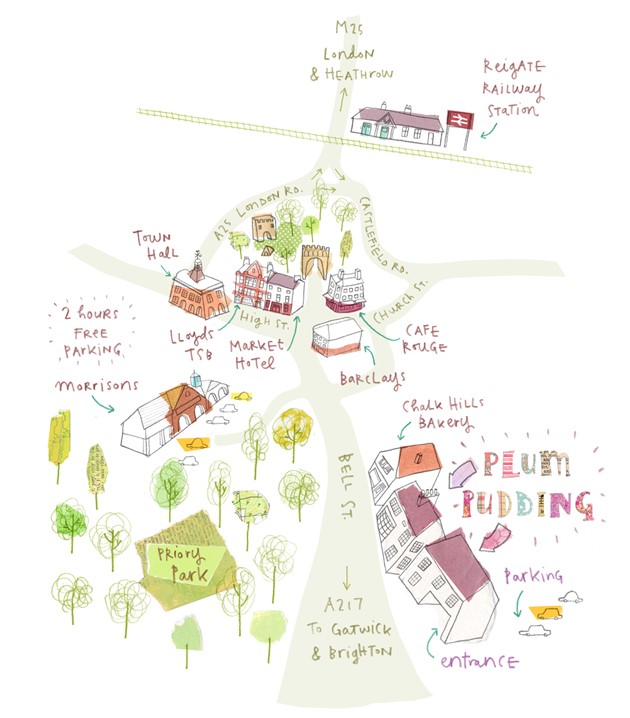 M25
London
& HEATHROW
REIGATE
RAILWAY
STATION
A25 LONDON RD.
CASTLEFIELD RD.
TOWN
HALL
CHURCH ST.
HIGH ST.
2 HOURS
FREE
PARKING
LLOYDS
TSB
MARKET
HOTEL
CAFE
ROUGE
BARCLAYS
MORRISONS
CHALK HILLS
BAKERY
PLUM
PUDDING
BELL ST.
PRIORY
PARK
PARKING
A217
TO GATWICK
& BRIGHTON
entrance